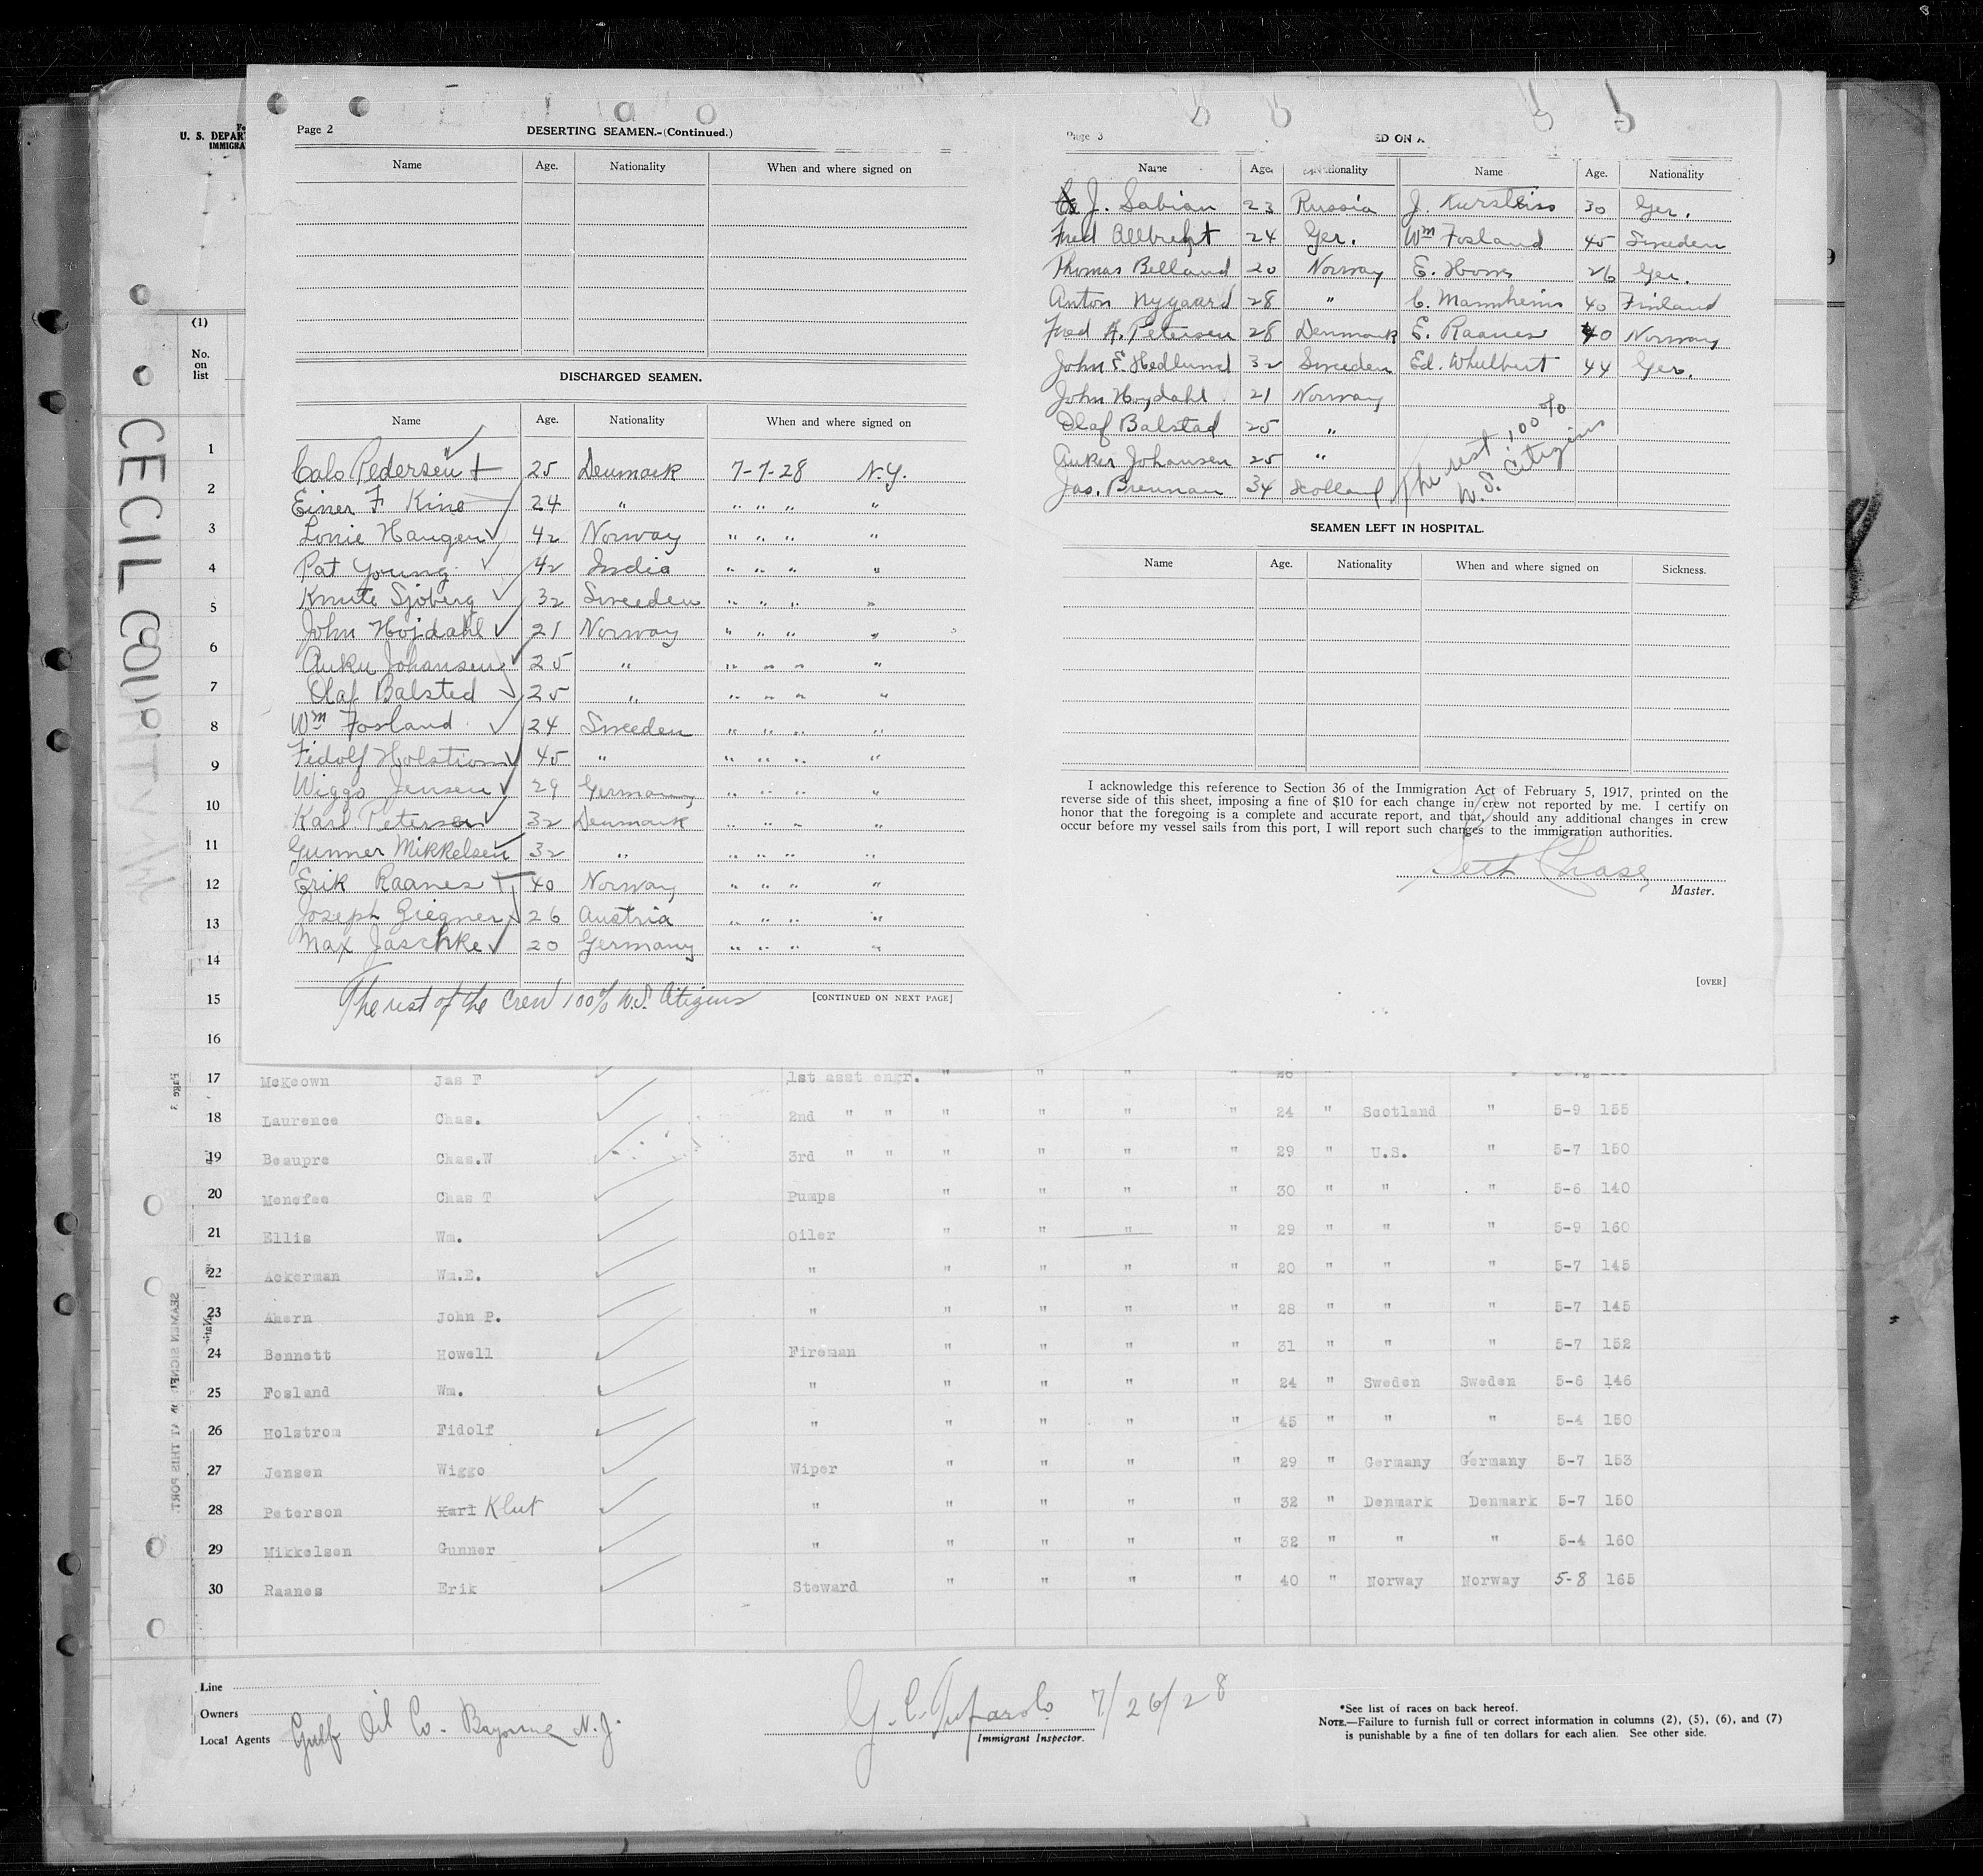 U. S. DEPAR
IMMIGRA
Page 2
DESERTING SEAMEN.-(Continued.)
Name Age. Nationality When and where signed on
DISCHARGED SEAMEN.
Name Age. Nationality When and where signed on
Calo Pedersen 25 Denmark 7-7-28 N.Y.
Einer F King 24 " " " " "
Lonie Haugen 42 Norway " " " "
Pat Young 42 India " " " "
Knute Sjoberg 32 Sweeden " " " "
John Hojdahl 21 Norway " " " "
Auku Johansen 25 " " " " "
Olaf Balsted 25 " " " " "
Wm Fosland 24 Sweeden " " " "
Fidolf Holstrom 45 " " " " "
Wiggo Jensen 29 Germany " " " "
Karl Petersen 32 Denmark " " " "
Gunner Mikkelsen 32 " " " " "
Erik Raanes 40 Norway " " " "
Joseph Ziegner 26 Austria " " " "
Max Jaschke 20 Germany " " " "
The rest of the crew 100% U.S. Citizens
[CONTINUED ON NEXT PAGE]
Page 3
ED ON A
Name Age. Nationality Name Age. Nationality
J. Sabian 23 Russia J. Kursteiss 30 Ger.
Fred Allbreht 24 Ger. Wm Fosland 45 Sweeden
Thomas Belland 20 Norway E. 26 Ger.
Anton Nygaard 28 " C. Mannheims 40 Finland
Fred A. Petersen 28 Denmark E. Raanes 40 Norway
John E. Hedlund 32 Sweeden Ed. Whulbert 44 Ger.
John Hoydahl 21 Norway
Olaf Balstad 25 "
Anker Johansen 25 "
Jas. Brennan 34 Scotland
The rest 100%
U.S. Citizens
SEAMEN LEFT IN HOSPITAL.
Name Age. Nationality When and where signed on Sickness.
I acknowledge this reference to Section 36 of the Immigration Act of February 5, 1917, printed on the
reverse side of this sheet, imposing a fine of $10 for each change in crew not reported by me. I certify on
honor that the foregoing is a complete and accurate report, and that, should any additional changes in crew
occur before my vessel sails from this port, I will report such changes to the immigration authorities.
Seth Chase
Master.
[OVER]
CECIL COUNTY
(1)
No.
on
list
1
2
3
4
5
6
7
8
9
10
11
12
13
14
15
16
17 McKeown Jas F 1st asst engr. " " " 28
18 Laurence Chas. 2nd " " " " " " 24 " Scotland " 5-9 155
19 Beaupre Chas.W 3rd " " " " " " 29 " U.S. " 5-7 150
20 Menefee Chas T Pumps " " " " 30 " " " 5-6 140
21 Ellis Wm. Oiler " " " " 29 " " " 5-9 160
22 Ackerman Wm.E. " " " " " 20 " " " 5-7 145
23 Ahern John P. " " " " " 28 " " " 5-7 145
24 Bennett Howell Fireman " " " " 31 " " " 5-7 152
25 Fosland Wm. " " " " " 24 " Sweden Sweden 5-6 146
26 Holstrom Fidolf " " " " " 45 " " " 5-4 150
27 Jensen Wiggo Wiper " " " " 29 " Germany Germany 5-7 153
28 Peterson Karl Klut " " " " " 32 " Denmark Denmark 5-7 150
29 Mikkelsen Gunner " " " " " 32 " " " 5-4 160
30 Raanes Erik Steward " " " " 40 " Norway Norway 5-8 165
Line
Owners
Local Agents Gulf Oil Co. Bayonne N.J.
7/26/28
Immigrant Inspector.
*See list of races on back hereof.
NOTE.—Failure to furnish full or correct information in columns (2), (5), (6), and (7)
is punishable by a fine of ten dollars for each alien. See other side.